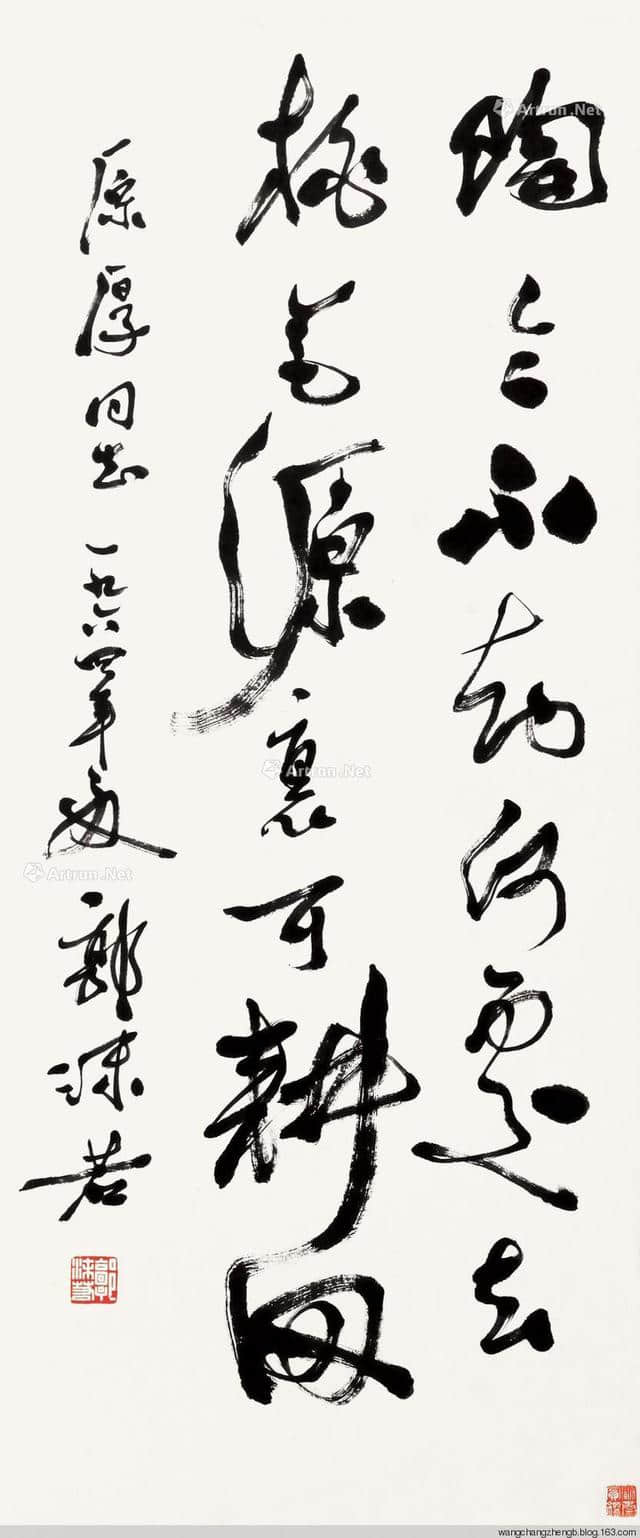 陶令不知何處去
桃花源裏可耕田
原厚同志 一九六四年夏 郭沫若
郭沫若
Artron.Net
Artron.Net
Artron.Net
wangchangzhengb.blog.163.com